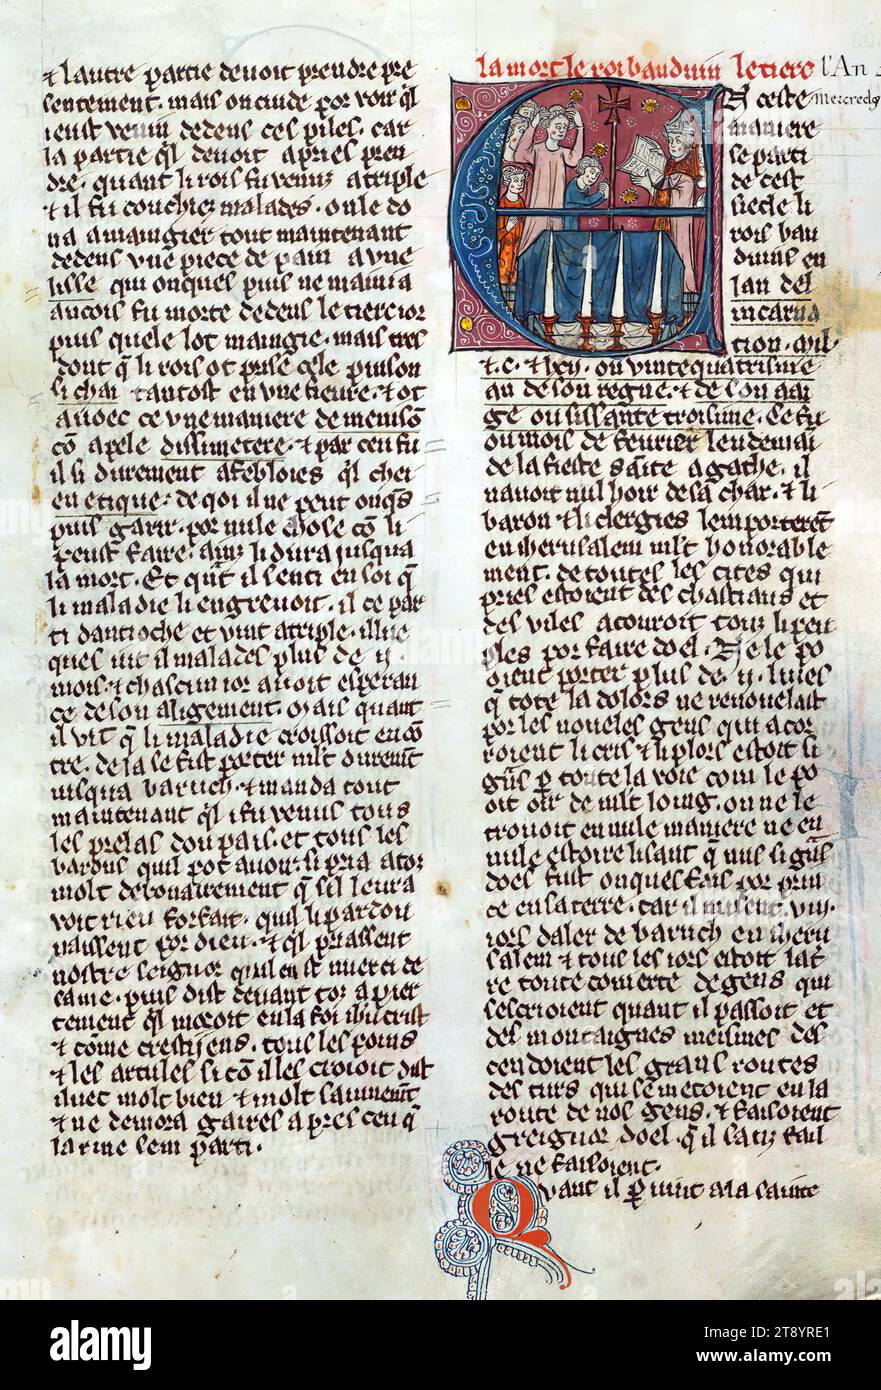 & lautre partie devoit prendre pre
sentement. mais on cuide por voir ql
i eust venin dedens ces piles. car
la partie ql devoit apres pren
dre. quant li rois fu venuz a triple
& il fu couchiez malades. on le do
na a maingier tout maintenant
dedens une piece de pain a une
lisse qui onques puis ne mainia
aucois fu morte dedens le tierc ior
puis quele lot maingie. mais tres
dont q li rois ot prise cele puison
si chai tantost en une fieure. & ot
avoec ce une maniere de menison
co apele dissintere. & par ce fu
il si durement afebloies ql chei
en etique. de qoi il ne peut onqs
puis garir. por nule chose co li
peust faire. ainz li dura jusqua
la mort. Et qnt il senti en soi q
li maladie li engrevoit. il ce par
ti dantioche et vint a triple. illue
ques iut il malades plus de ij
mois. & chascun ior avoit esperan
ce de son aligement. Mais quant
il vit q li maladie croissoit enco
tre. de la se fist porter mlt durement
iusqua baruch. & manda tout
maintenant ql i fu venus tous
les prelas dou pais. et tous les
barons quil pot avoir. si pria a tor
molt debonairement q sil leur a
voit rien forfait. quil li pardon
naissent por dieu. & ql priassent
nostre seignor quil en st merci de
same. puis dist devant toz apier
tement ql moroit en la foi ihu crist
& come crestijens. tous les poins
& les articles si co il les croioit dist
iluec molt bien & molt sainnement
& ne demora gaires apres ceu q
larme sem parti.
la mort le roi bauduin le tierc l'An
Mercredy
En ceste
maniere
se parti
de cest
siecle li
rois bau
duins en
lan del
incarna
tion. mil.
& c. & lxij. ou vinte quatrisme
an de son regne. & de son aai
ge ou sissante troisime. Ce fu
ou mois de fevrier lendemai
de la fieste sainte agathe. il
navoit nul hoir de sa char. & li
baron & li clergies lemporterent
en iherusalem mlt honorable
ment. de toutes les cites qui
pries estoient des chastiaus et
des viles acouroit touz li peu
ples por faire doel. Ne le po
oient porter plus de .ij. liues
q tote la dolors ne renouelast
por les noueles gens qui acor
roient li cris & li plors estoit si
gns p toute la voie com le po
oit oir de mlt loing. on ne le
trovoit en nule maniere ne en
nule estoire lisant q nus si gns
doel fust onques fais por prin
ce en sa terre. car il misent. viij.
iors daler de baruch en iheru
salem & tous les iors estoit la t
re toute couverte de gens qui
sescrioient quant il passoit et
des montaignes meismes des
cendoient les grans routes
des turs qui se metoient en la
route de nos gens. & faisoient
greignor doel. q il sanz fail
le ne faisoient.
Qvant il p vint a la sainte
alamy
Image ID: 2T8YRE1
www.alamy.com